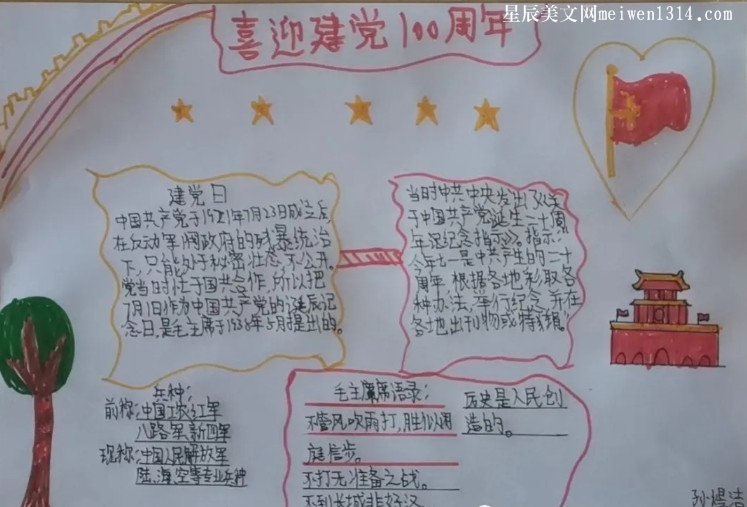 星辰美文网meiwen1314.com
喜迎建党100周年
建党日
中国共产党于1921年7月23日成立后,
在反动军阀政府的残暴统治
下,只能处于秘密状态,不公开。
党当时忙于国共合作,所以把
7月1日作为中国共产党的诞辰记
念日,是毛主席于1938年5月提出的。
当时中共中央发出《关
于中国共产党诞生二十周
年纪念指示》指示:
今年七一是中共产生的二十
周年,根据各地采取各
种办法,举行纪念,并在
各地出刊物或特辑。
兵种:
前称:中国工农红军
八路军,新四军
现称:中国人民解放军
陆、海、空等专业兵种
毛主席语录:
不管风吹雨打,胜似闲
庭信步。
不打无准备之战。
不到长城非好汉
历史是人民创
造的。